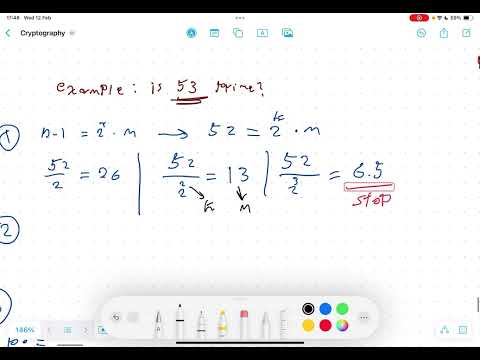 17:48 Wed 12 Feb
Cryptography
example: is 53 prime?
① n-1 = 2^k · m → 52 = 2^k · m
52/2 = 26 | 52/2^2 = 13 | 52/2^3 = 6.5
k M stop
②
186%